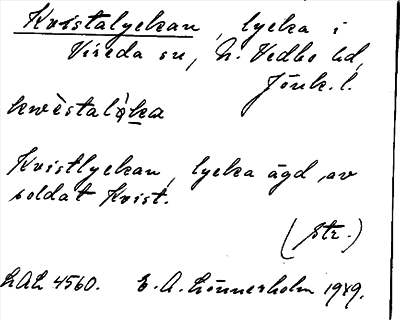 Kvistalyckan, lycka i
Vireda sn, N. Vedbo hd,
Jönk. l.
kwèstalỳka
Kvistlyckan, lycka ägd av
soldat Kvist.
(Str.)
LAL 4560. E. A. Lönnerholm 1929.